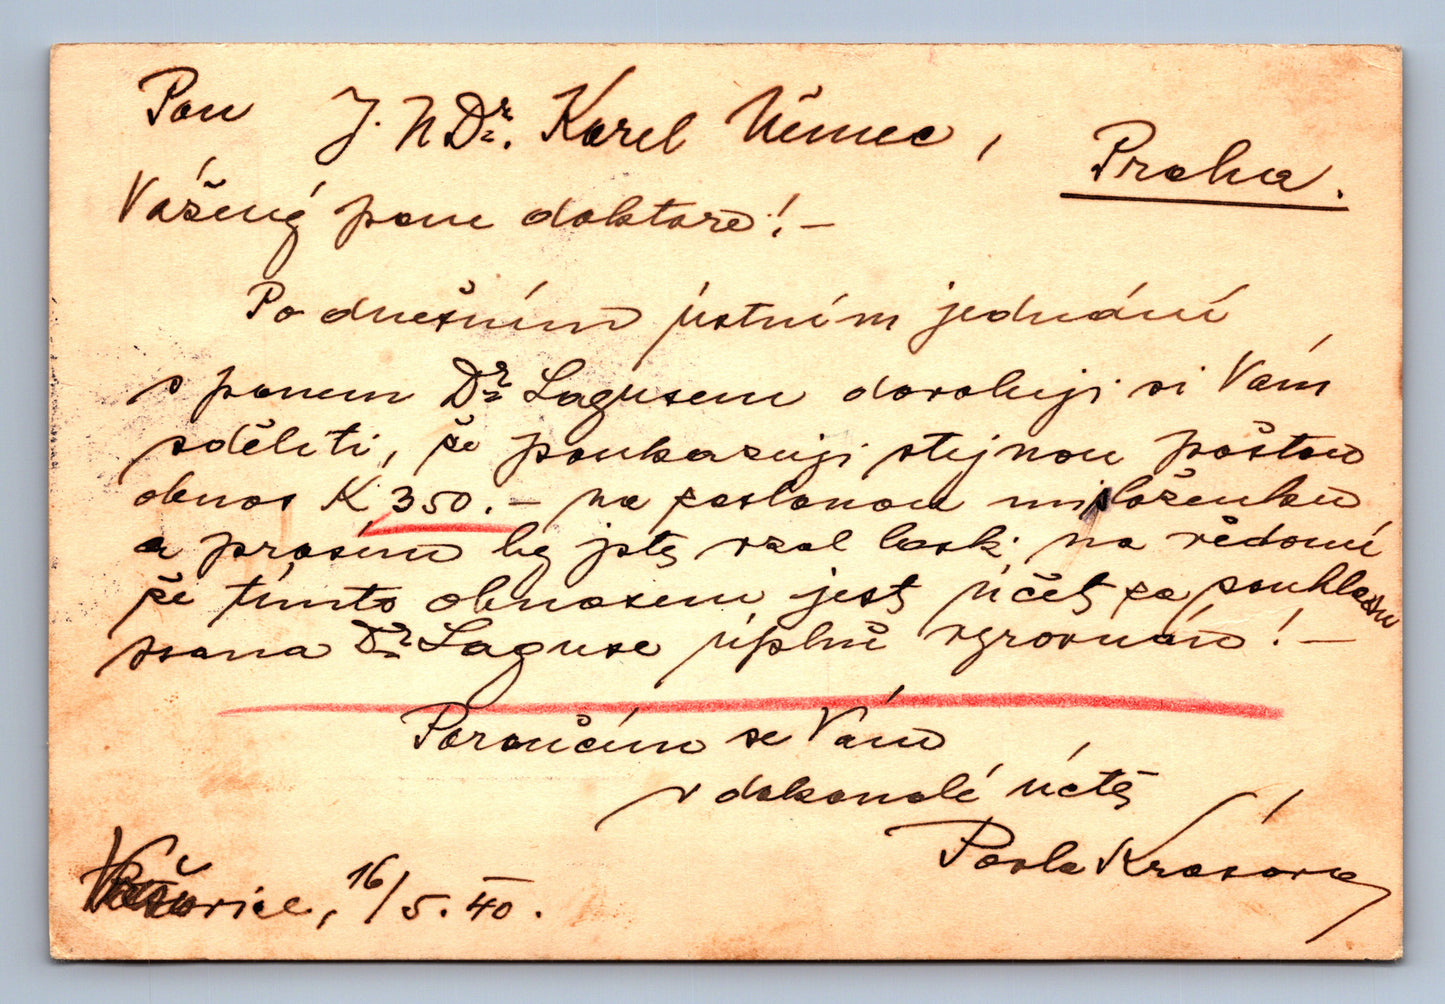 Pan J. N Dr. Karel Němec,
Praha.
Vážený pane doktore! –
Po dnešním ústním jednání
s panem Dr Lagusem dovoluji si Vám
sděliti, že poukazuji stejnou poštou
obnos K 350.– na zaslanou mi složenku
a prosím by jste vzal lask. na vědomí
že tímto obnosem jest účet za pouhledu
pana Dr Laguse úplně vyrovnán! –
Poroučím se Vám
v dokonalé úctě
Pavla Krásová
Vršovice, 16/5. 40.